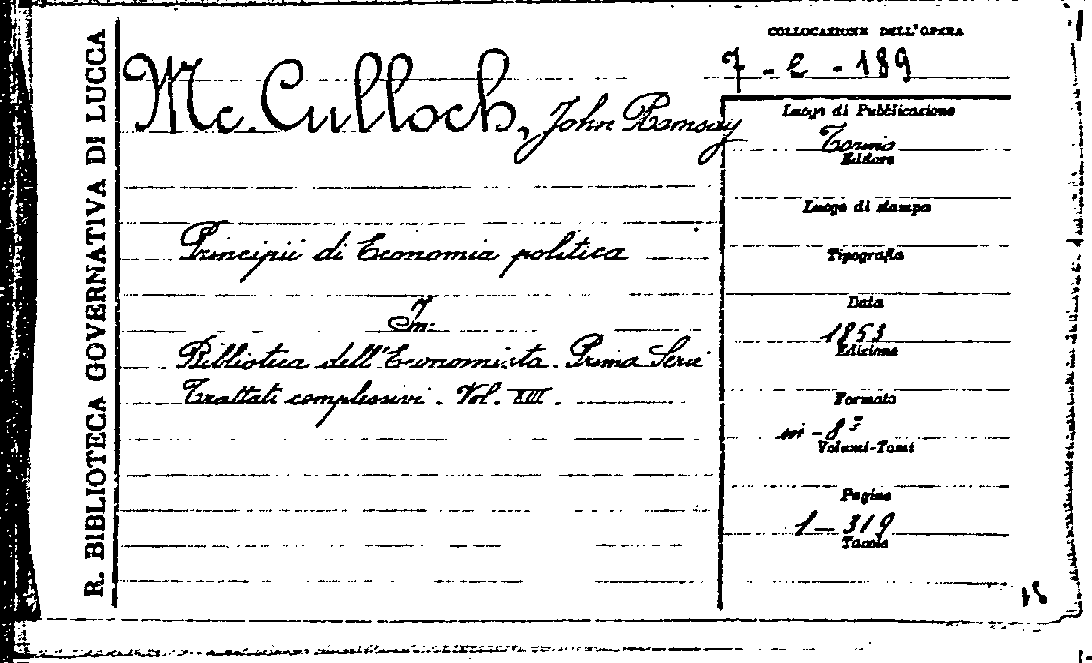 R. BIBLIOTECA GOVERNATIVA DI LUCCA
Mc. Culloch, John Ramsay
Principii di Economia politica
In:
Biblioteca dell'Economista. Prima Serie
Trattati complessivi. Vol. XIII.
COLLOCAZIONE DELL'OPERA
7 - e - 189
Luogo di Pubblicazione
Torino
Editore
Luogo di stampa
Tipografia
Data
1853
Edizione
Formato
in - 8°
Volumi-Tomi
Pagine
1 - 319
Tavole
18